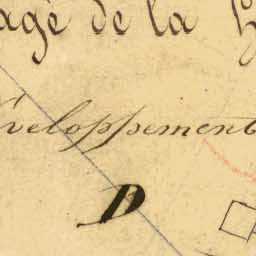 agé de la
éveloppement
D